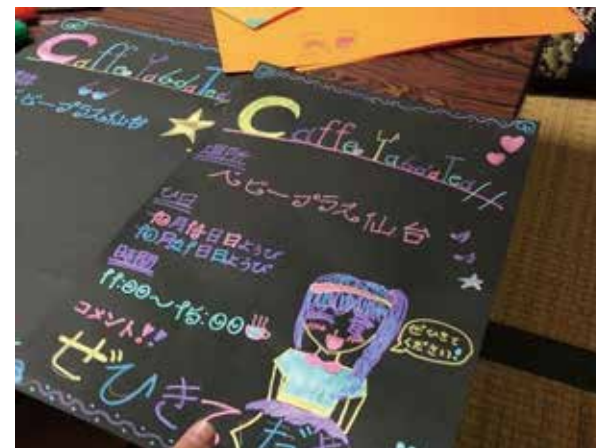 Caffe YabdaTea
ベビープラス仙台
Caffe YabdaTea//
場所
ベビープラス仙台
ひ日
10月14日日ようび
10月21日日ようび
時間
11:00~15:00
コメント!!
ぜひきて
ぜひきて
ください!